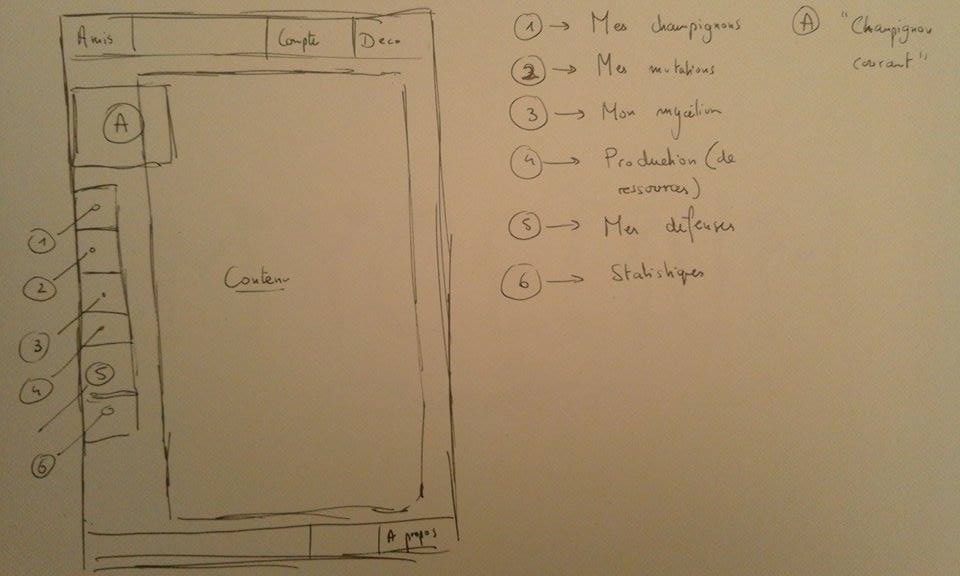 Amis Compte Deco
A
Contenu
1
2
3
4
5
6
A propos
1 → Mes champignons
2 → Mes mutations
3 → Mon mycélium
4 → Production (de
ressources)
5 → Mes défenses
6 → Statistiques
A "Champignon
courant"